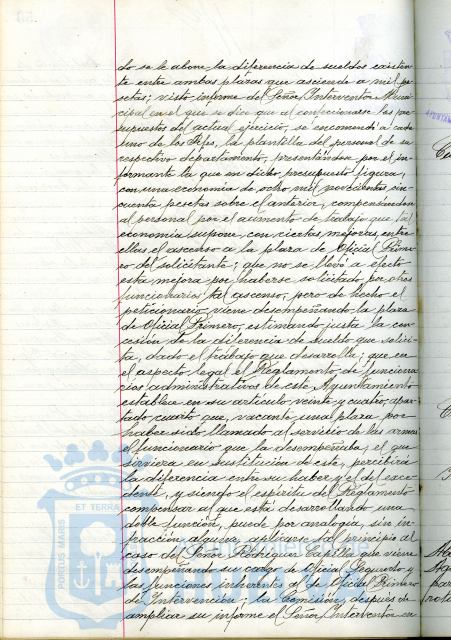 do se le abone la diferencia de sueldos existen-
te entre ambas plazas que asciende a mil pe-
setas; visto informe del Señor Interventor Muni-
cipal en el que se dice que al confeccionarse los pre-
supuestos del actual ejercicio, se encomendó a cada
uno de los Jefes, la plantilla del personal de su
respectivo departamento, presentándose por el in-
formante la que en dicho presupuesto figura,
con una economía de ocho mil novecientas cin-
cuenta pesetas sobre el anterior, compensándose
al personal por el aumento de trabajo que tal
economía supone, con ciertas mejoras, entre
ellas el ascenso a la plaza de Oficial Prime-
ro del solicitante; que no se llevó a efecto
esta mejora por haberse solicitado por otros
funcionarios tal ascenso, pero de hecho el
peticionario viene desempeñando la plaza
de Oficial Primero, estimando justa la con-
cesión de la diferencia de sueldo que solici-
ta, dado el trabajo que desarrolla; que en
el aspecto legal el Reglamento de funciona-
rios administrativos de este Ayuntamiento
establece en su artículo veinte y cuatro, apar-
tado cuarto que, vacante una plaza por
haber sido llamado al servicio de las armas
el funcionario que la desempeñaba, el que
sirviera en sustitución de este, percibirá
la diferencia entre su haber y el del exce-
dente, y siendo el espíritu del Reglamento
compensar al que está desarrollando una
doble función, puede por analogía, sin in-
fracción alguna, aplicarse tal principio al
caso del Señor Castillo que viene
desempeñando su cargo de Oficial Segundo y
las funciones inherentes al de Oficial Primero
de Intervención; la Comisión, después de
ampliar su informe el Señor Interventor en
PORTUS MARIS ET TERRA